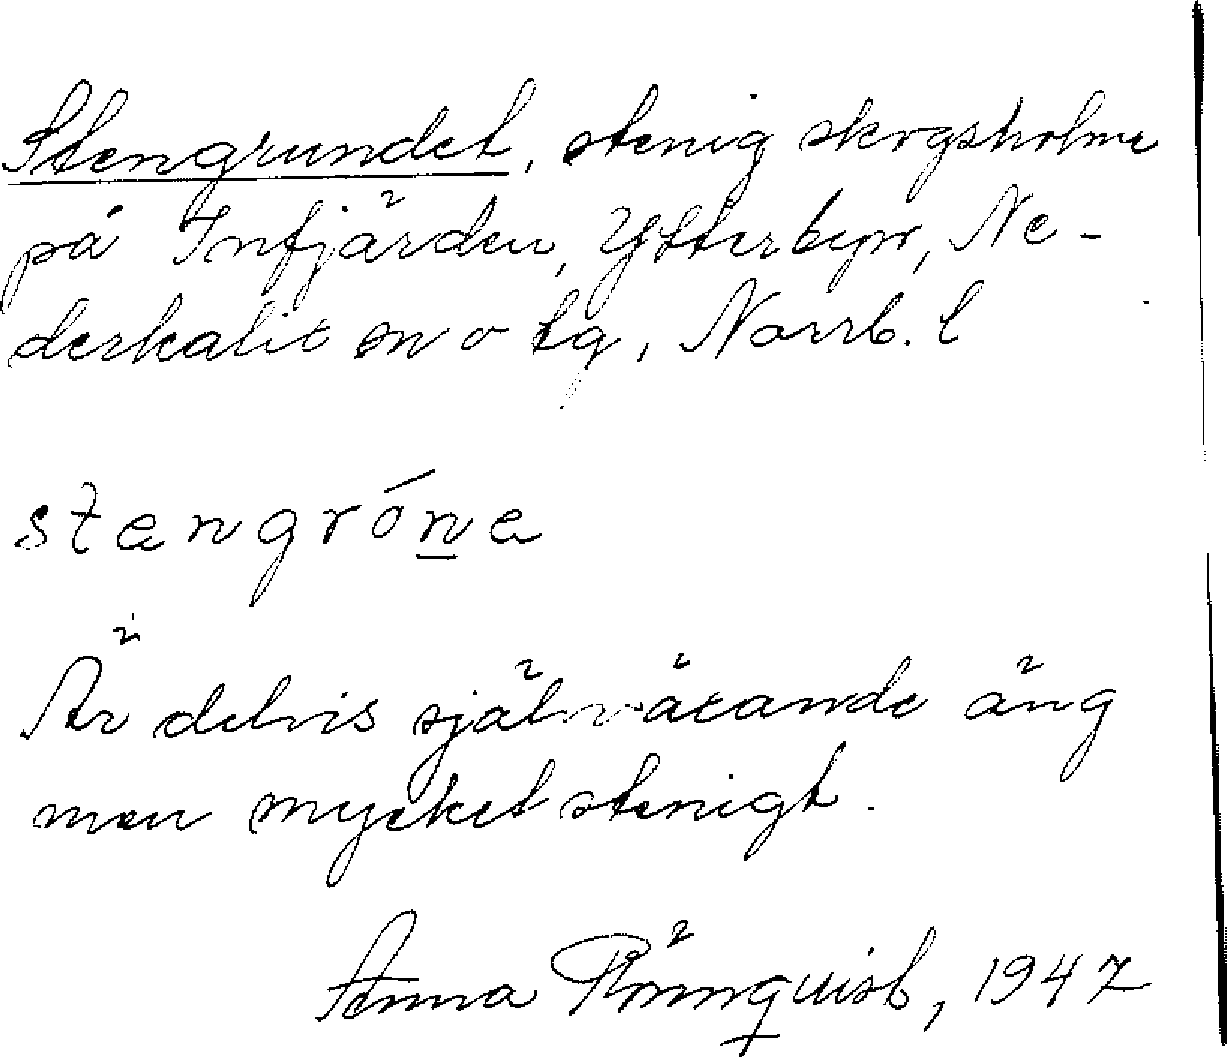 Stengrundet, stenig skogsholme
på Infjärden, Ytterbyn, Ne-
derkalix sn o tg, Norrb. l
stengróne
Är delvis självätande äng
men mycket stenigt.
Anna Rönnquist, 1947